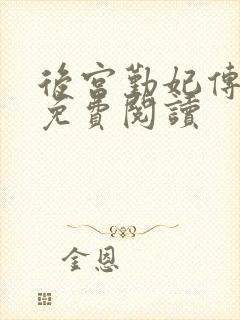 後宮勤妃傳
免費閱讀
金恩